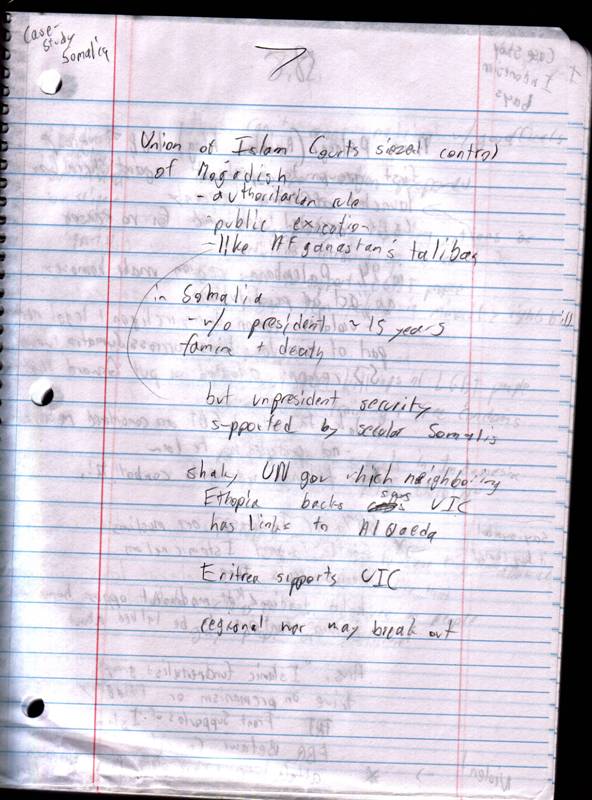 Case-
Study
Somalia
Union of Islam Courts siezed control
of Mogadish
- authoritarian rule
- public exicution
- like Afganastan's taliban
in Somalia
- w/o president ~ 15 years
famine + death
but unpresident security
supported by secular Somalis
shaky UN gov which neighboring
Ethopia backs says UIC
has links to Al Qaeda
Eritrea supports UIC
regional war may break out